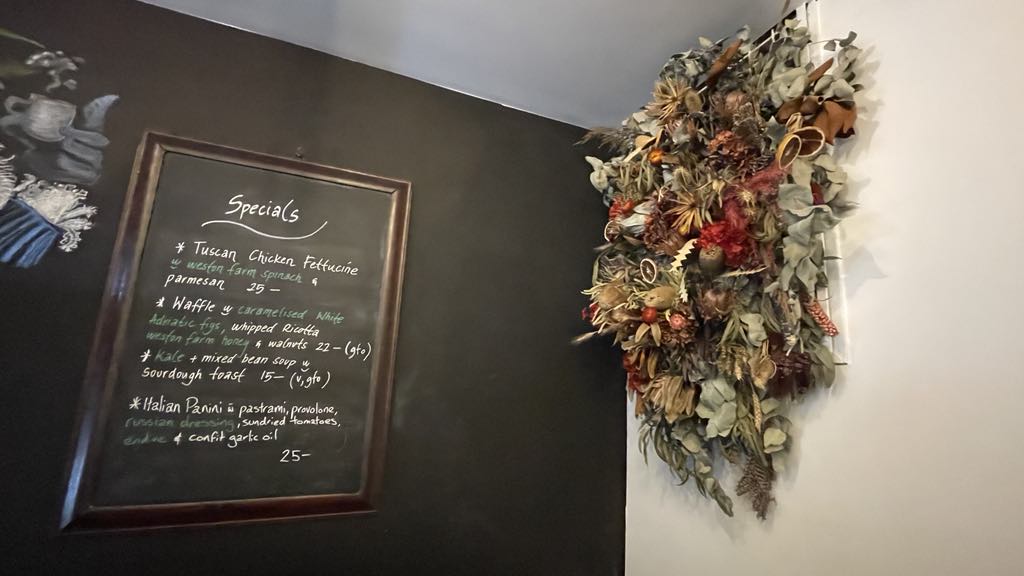 Specials
* Tuscan Chicken Fettucine
w weston farm spinach &
parmesan 25 —
* Waffle w caramelised White
Adriatic figs, whipped Ricotta
weston farm honey & walnuts 22 — (gfo)
* Kale + mixed bean soup w
sourdough toast 15 — (v, gfo)
* Italian Panini w pastrami, provolone,
russian dressing, sundried tomatoes,
& confit garlic oil
25 —